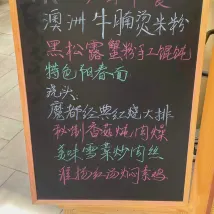 澳洲牛腩烫米粉
黑松露蟹粉手工馄饨
特色阳春面
浇头:
魔都经典红烧大排
秘制香菇炖肉燥
美味雪菜炒肉丝
淮扬红油焖素鸡